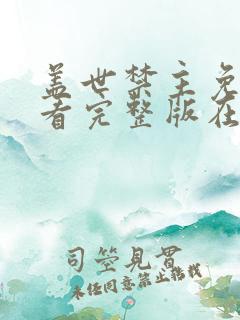 盖世禁主免
看完整版在
司空見貫
未经同意禁止转载